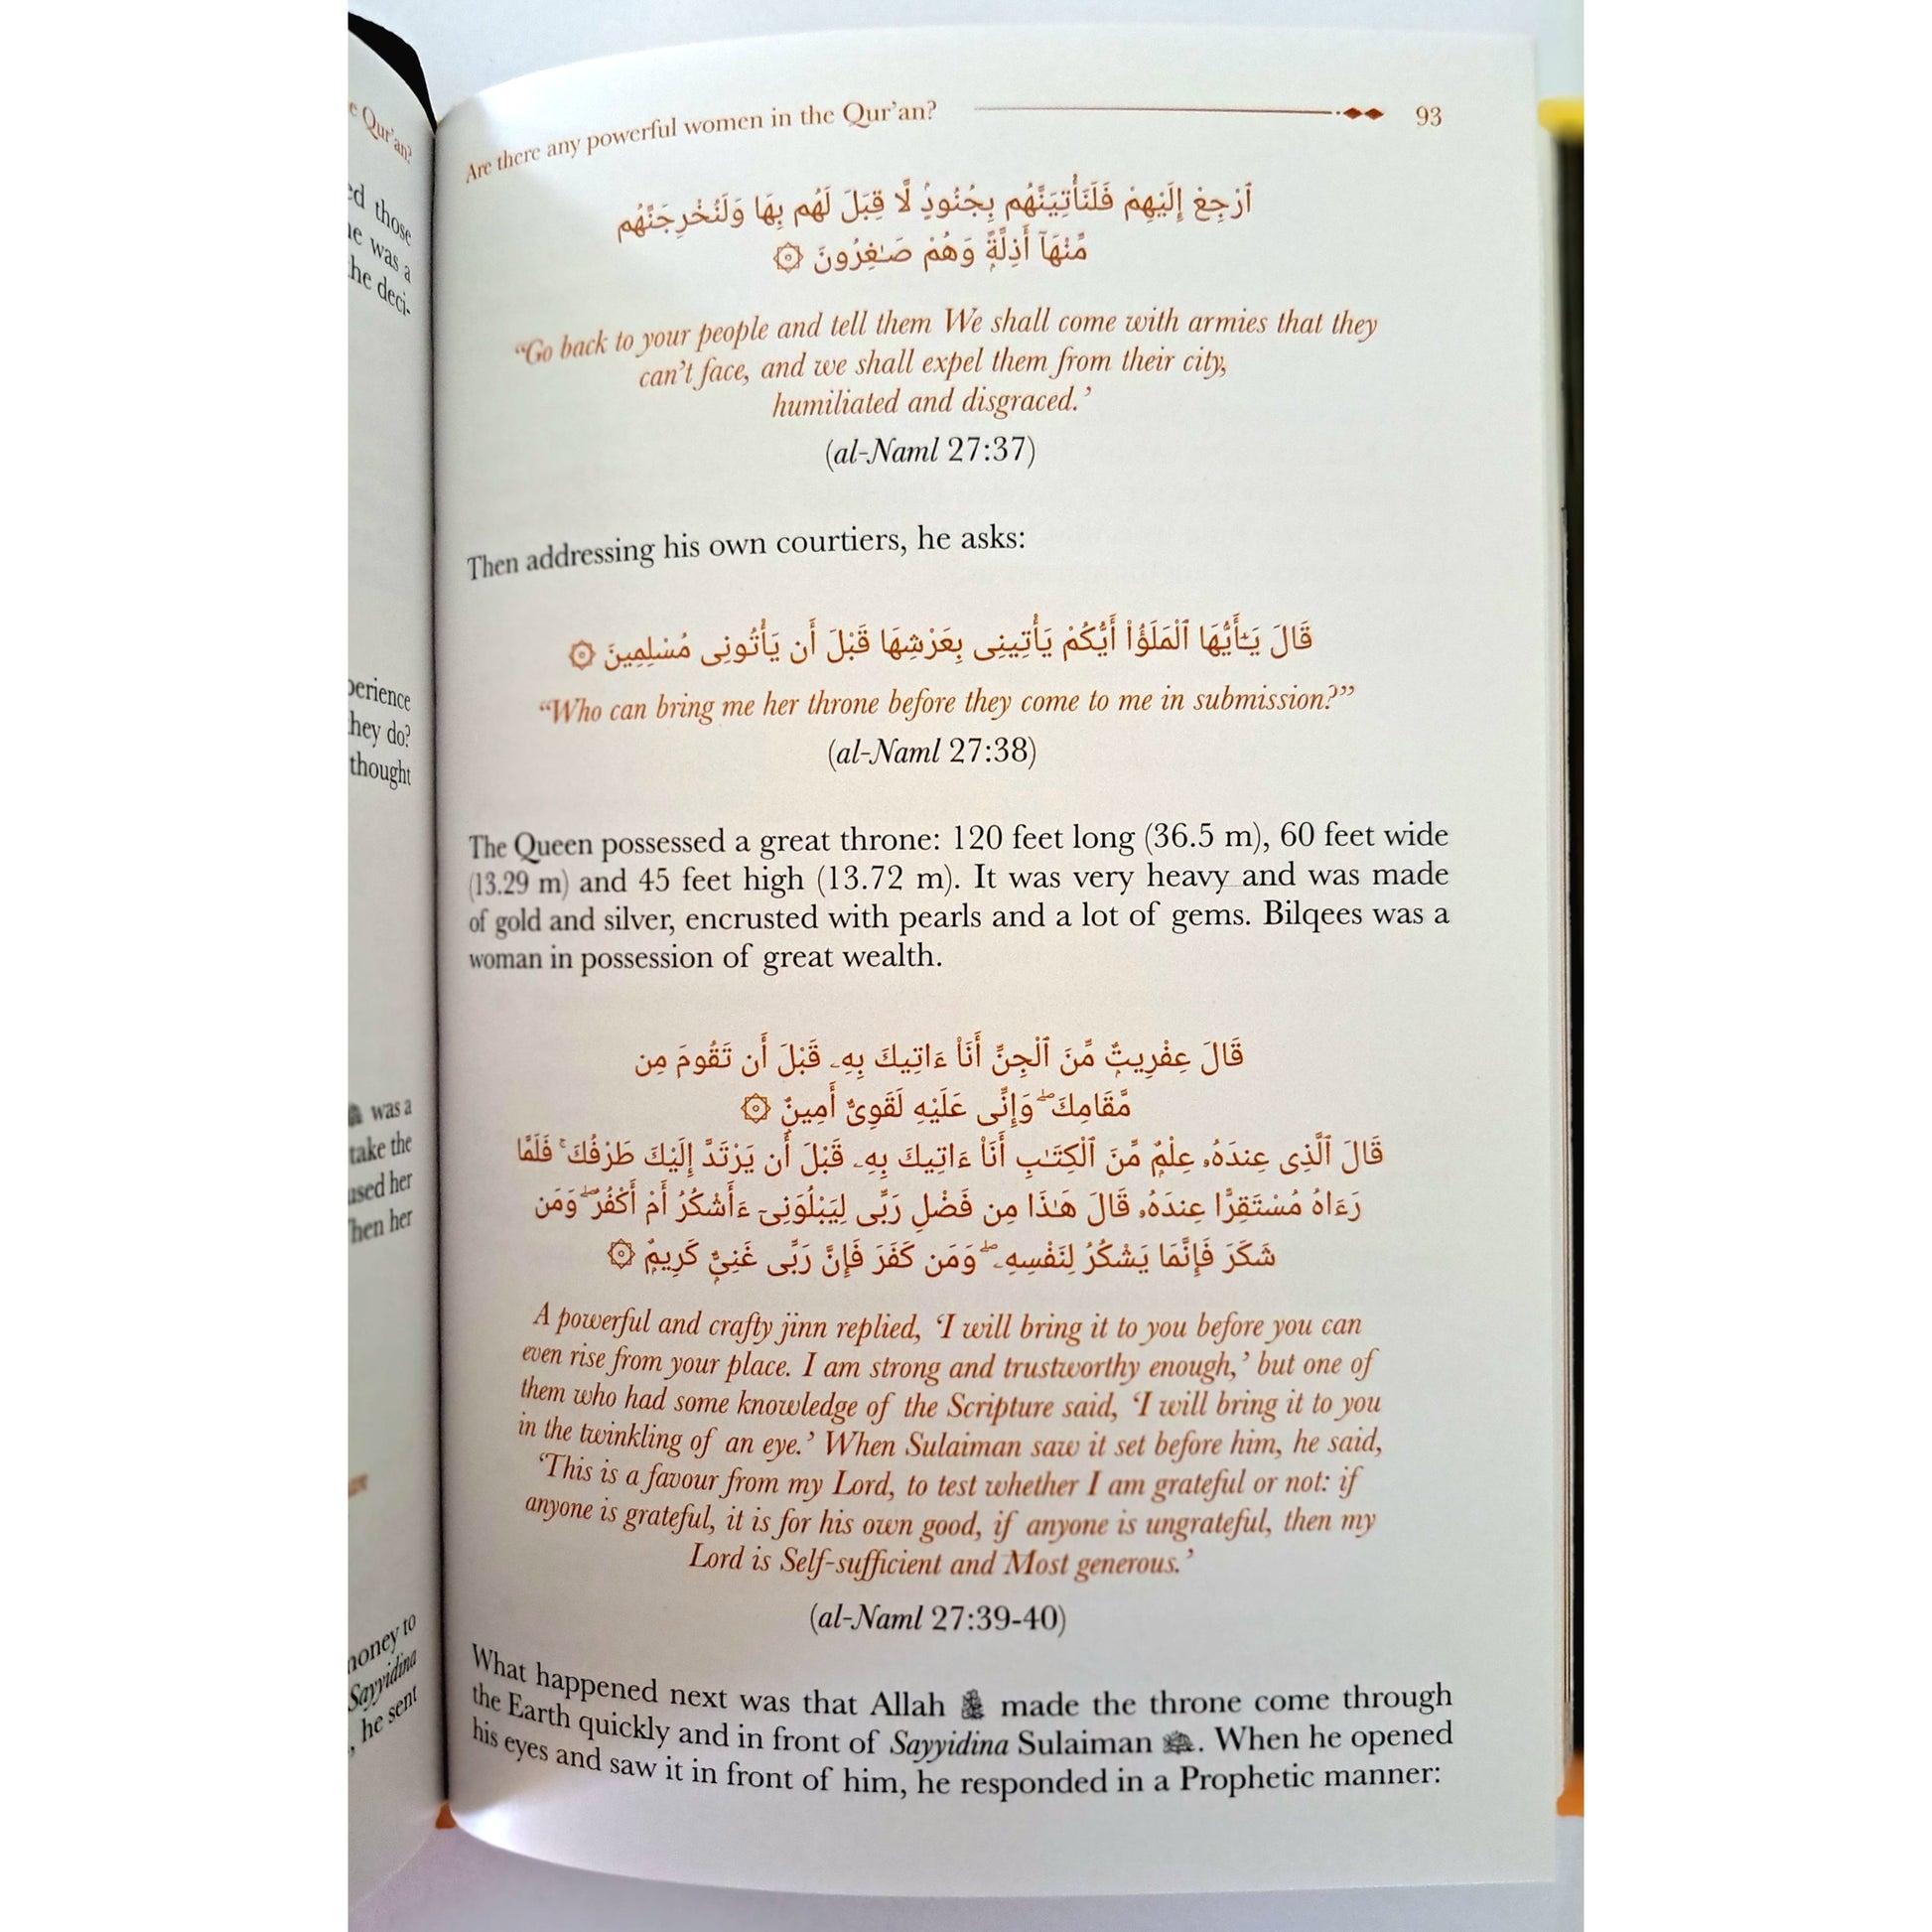 e Qur'an?
ed those
he was a
the deci-
perience
they do?
thought
was a
take the
used her
Then her
money to
Sayyidina
, he sent
Are there any powerful women in the Qur'an? 93
ٱرْجِعْ إِلَيْهِمْ فَلَنَأْتِيَنَّهُم بِجُنُودٍ لَّا قِبَلَ لَهُم بِهَا وَلَنُخْرِجَنَّهُم
مِّنْهَآ أَذِلَّةً وَهُمْ صَـٰغِرُونَ ۞
“Go back to your people and tell them We shall come with armies that they
can't face, and we shall expel them from their city,
humiliated and disgraced.’
(al-Naml 27:37)
Then addressing his own courtiers, he asks:
قَالَ يَـٰٓأَيُّهَا ٱلْمَلَؤُا۟ أَيُّكُمْ يَأْتِينِى بِعَرْشِهَا قَبْلَ أَن يَأْتُونِى مُسْلِمِينَ ۞
“Who can bring me her throne before they come to me in submission?”
(al-Naml 27:38)
The Queen possessed a great throne: 120 feet long (36.5 m), 60 feet wide
(13.29 m) and 45 feet high (13.72 m). It was very heavy and was made
of gold and silver, encrusted with pearls and a lot of gems. Bilqees was a
woman in possession of great wealth.
قَالَ عِفْرِيتٌ مِّنَ ٱلْجِنِّ أَنَا۠ ءَاتِيكَ بِهِۦ قَبْلَ أَن تَقُومَ مِن
مَّقَامِكَ ۖ وَإِنِّى عَلَيْهِ لَقَوِىٌّ أَمِينٌ ۞
قَالَ ٱلَّذِى عِندَهُۥ عِلْمٌ مِّنَ ٱلْكِتَـٰبِ أَنَا۠ ءَاتِيكَ بِهِۦ قَبْلَ أَن يَرْتَدَّ إِلَيْكَ طَرْفُكَ ۚ فَلَمَّا
رَءَاهُ مُسْتَقِرًّا عِندَهُۥ قَالَ هَـٰذَا مِن فَضْلِ رَبِّى لِيَبْلُوَنِىٓ ءَأَشْكُرُ أَمْ أَكْفُرُ ۖ وَمَن
شَكَرَ فَإِنَّمَا يَشْكُرُ لِنَفْسِهِۦ ۖ وَمَن كَفَرَ فَإِنَّ رَبِّى غَنِىٌّ كَرِيمٌ ۞
A powerful and crafty jinn replied, ‘I will bring it to you before you can
even rise from your place. I am strong and trustworthy enough,’ but one of
them who had some knowledge of the Scripture said, ‘I will bring it to you
in the twinkling of an eye.’ When Sulaiman saw it set before him, he said,
‘This is a favour from my Lord, to test whether I am grateful or not: if
anyone is grateful, it is for his own good, if anyone is ungrateful, then my
Lord is Self-sufficient and Most generous.’
(al-Naml 27:39-40)
What happened next was that Allah made the throne come through
the Earth quickly and in front of Sayyidina Sulaiman. When he opened
his eyes and saw it in front of him, he responded in a Prophetic manner: